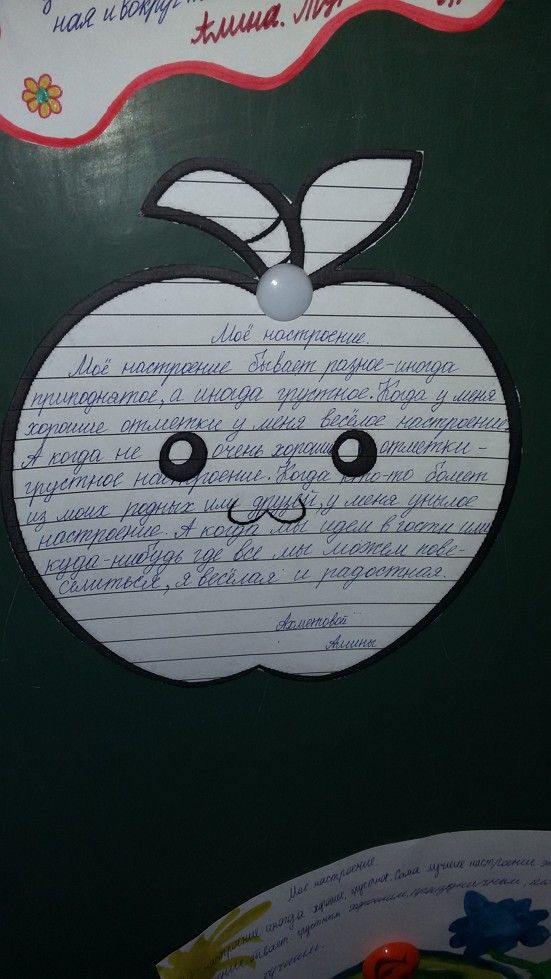 ная и вокруг
Алина.
Моё настроение.
Моё настроение бывает разное-иногда
приподнятое, а иногда грустное. Когда у меня
хорошие отметки у меня весёлое настроение
А когда не очень хорошие отметки-
грустное настроение. Когда кто-то болеет
из моих родных или друзей, у меня унылое
настроение. А когда мы идем в гости или
куда-нибудь где все мы можем пове-
селиться, я весёлая и радостная.
Ахметовой
Алины
Моё настроение.
настроение иногда хорошее, грустное. Само лучшее настроение
бывает грустным